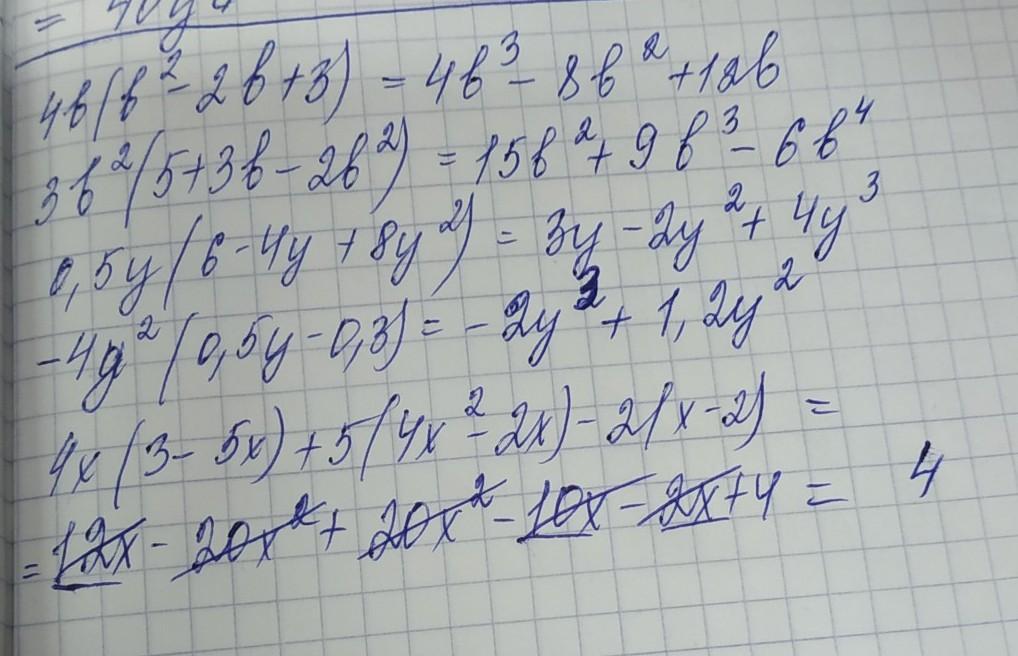 = 40y⁴
4b(b² - 2b + 3) = 4b³ - 8b² + 12b
3b²(5 + 3b - 2b²) = 15b² + 9b³ - 6b⁴
0,5y(6 - 4y + 8y²) = 3y - 2y² + 4y³
-4y²(0,5y - 0,3) = -2y³ + 1,2y²
4x(3 - 5x) + 5(4x² - 2x) - 2(x - 2) =
= 12x - 20x² + 20x² - 10x - 2x + 4 = 4